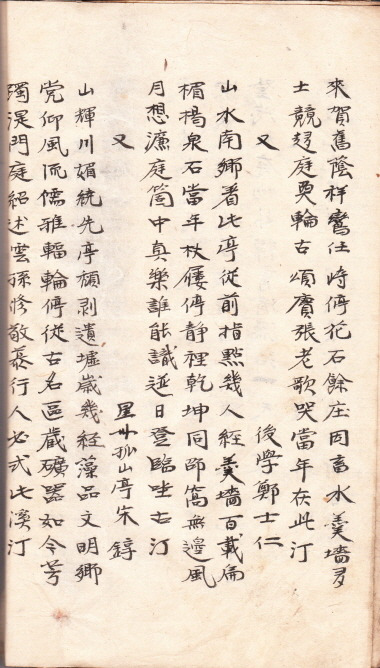 來賀舊蔭祥鸞仕時停花石餘庄因畜水羹墻多
士競趍庭奐輪古頌賡張老歌哭當年在此汀
又 後學鄭士仁
山水南鄉着此亭從前指點幾人經羹墻百載扁
楣揭泉石當年杖屨停靜裡乾坤同邵窩無邊風
月想濂庭箇中眞樂誰能識逝日登臨坐古汀
又 星州孤山亭宋錞
山輝川媚統先亭頹剥遺墟歲幾經藻品文明鄉
党仰風流儒雅輻輪停從古名區藏礦器如今芳
躅浞門庭紹述雲孫修敬慕行人必式此溪汀